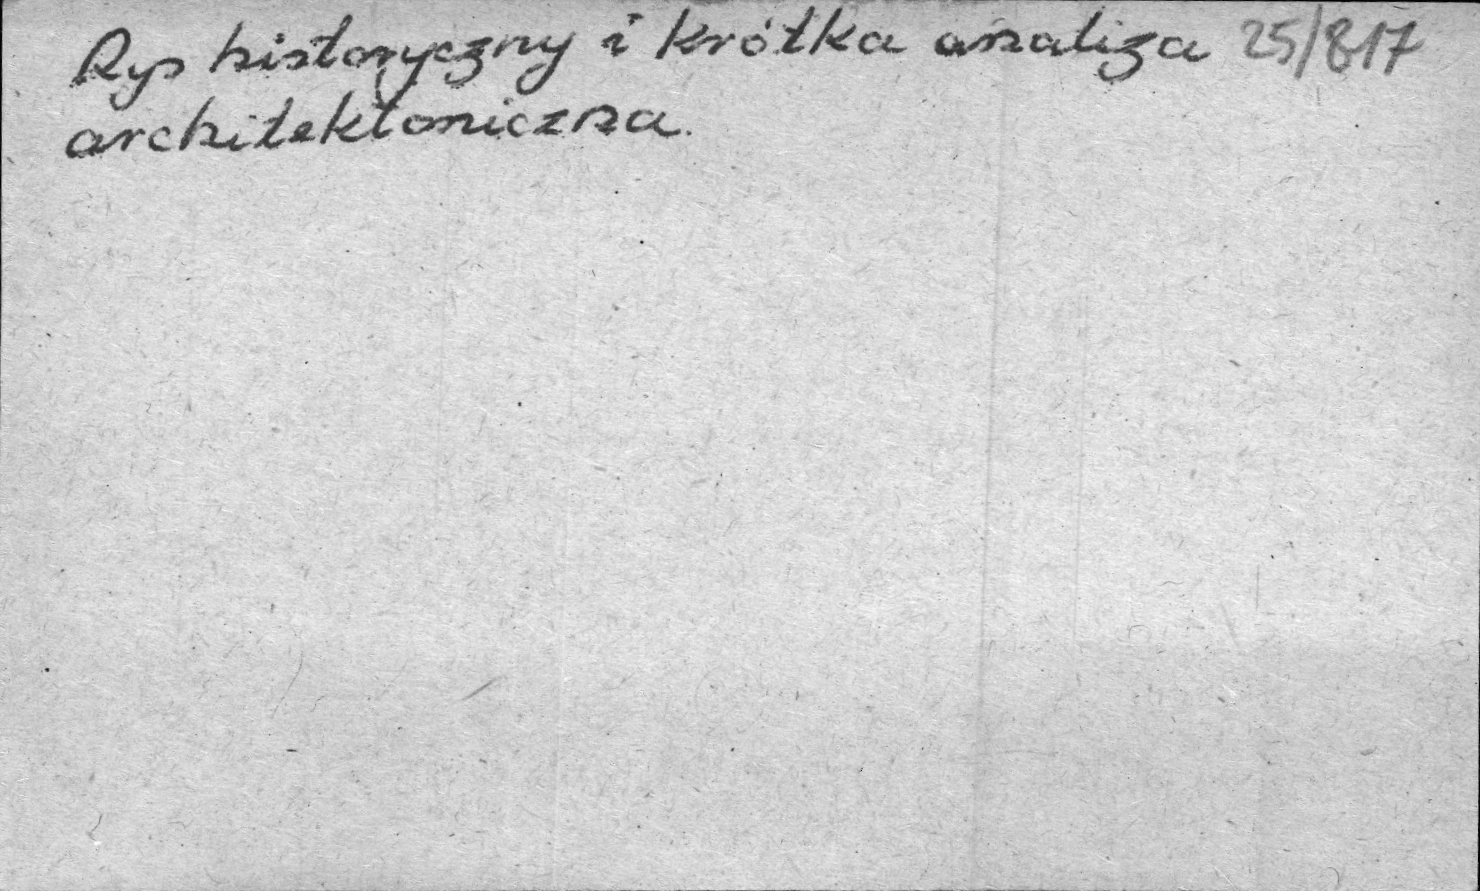 Rys historyczny i krótka analiza 25/817
architektoniczna.